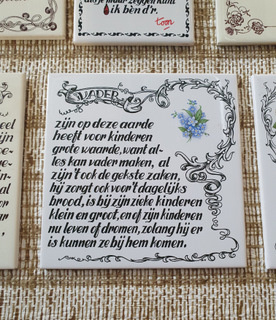 als je maar zeggen kunt
ik ben d'r.
tom
VADER
zijn op deze aarde
heeft voor kinderen
grote waarde, want al-
les kan vader maken, al
zijn't ook de gekste zaken,
hij zorgt ook voor't dagelijks
brood, is bij zijn zieke kinderen
klein en groot, en of zijn kinderen
nu leven of dromen, zolang hij er
is kunnen ze bij hem komen.